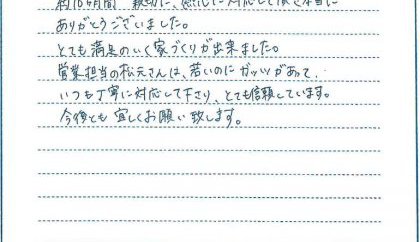 約10ヶ月間 親切に、対応して頂き本当に
ありがとうございました。
とても満足のいく家づくりが出来ました。
営業担当の松元さんは、若いのにガッツがあって、
いつも丁寧に対応して下さり、とても信頼しています。
今後とも 宜しくお願い致します。